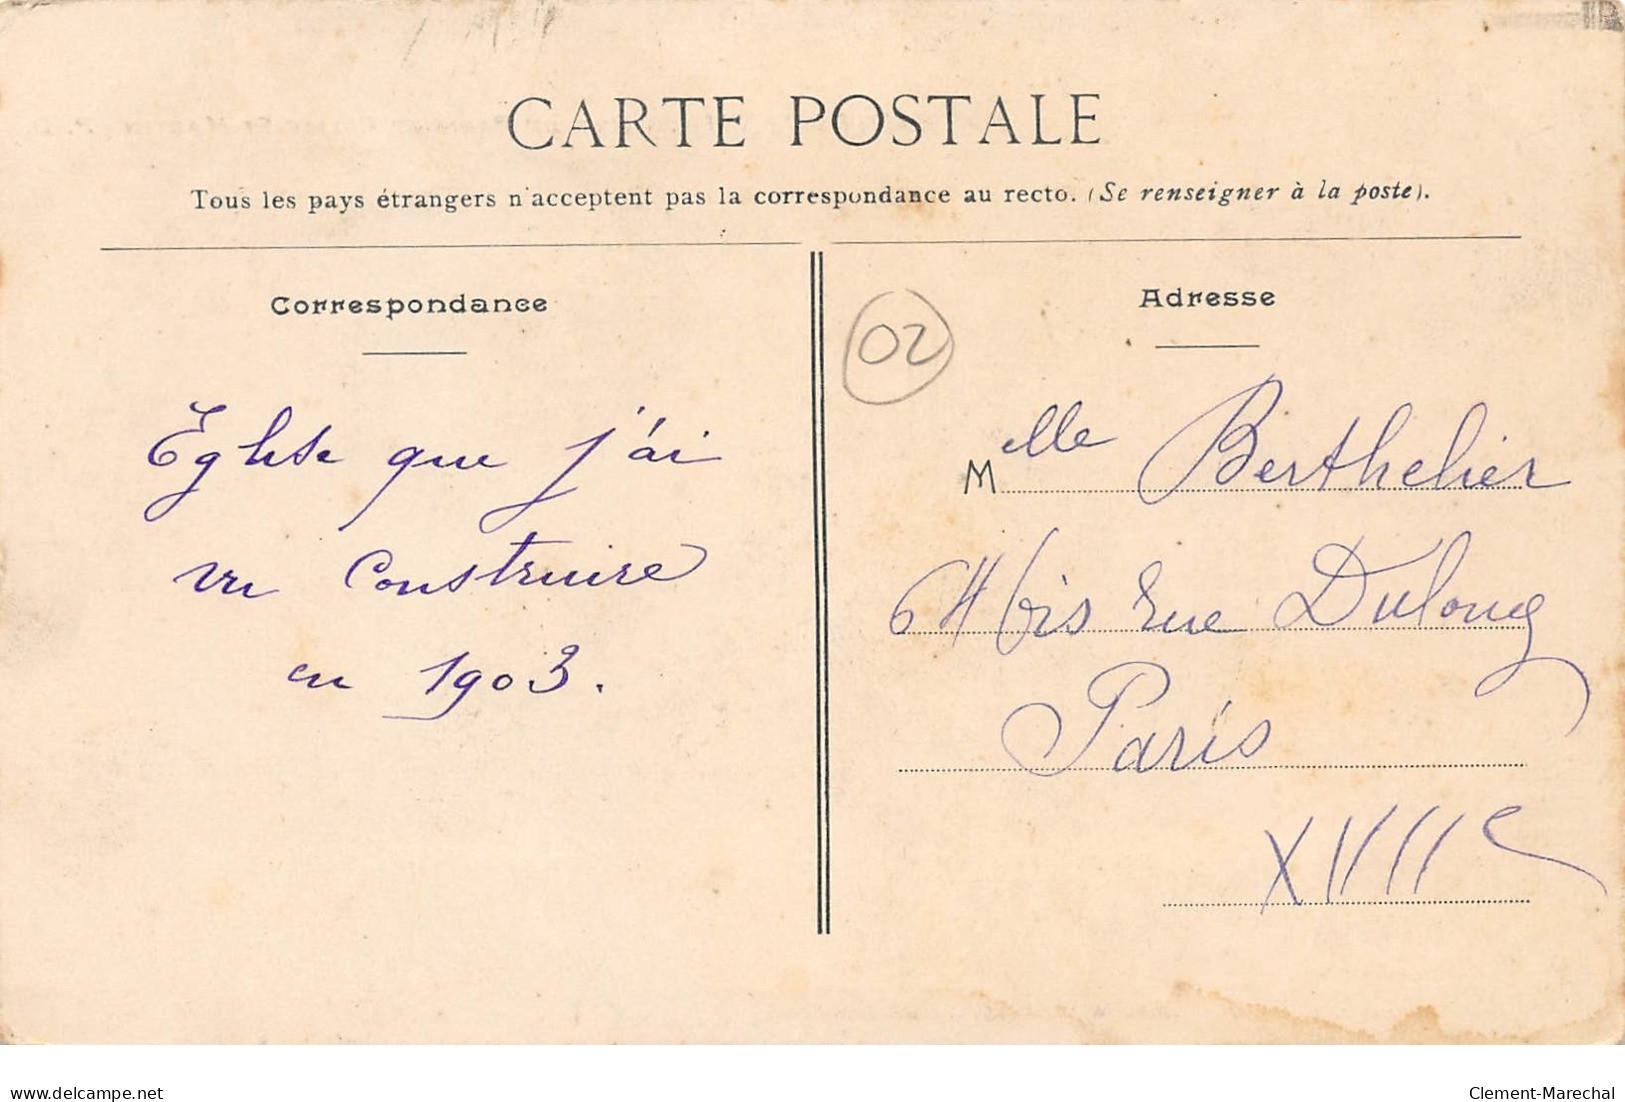 CARTE POSTALE
Tous les pays étrangers n'acceptent pas la correspondance au recto. (Se renseigner à la poste).
Correspondance
Eglise que j'ai
vu Construire
en 1903.
Adresse
02
Melle Berthelier
64 bis rue Dulong
Paris
XVIIe
delcampe.net
Clement-Marechal